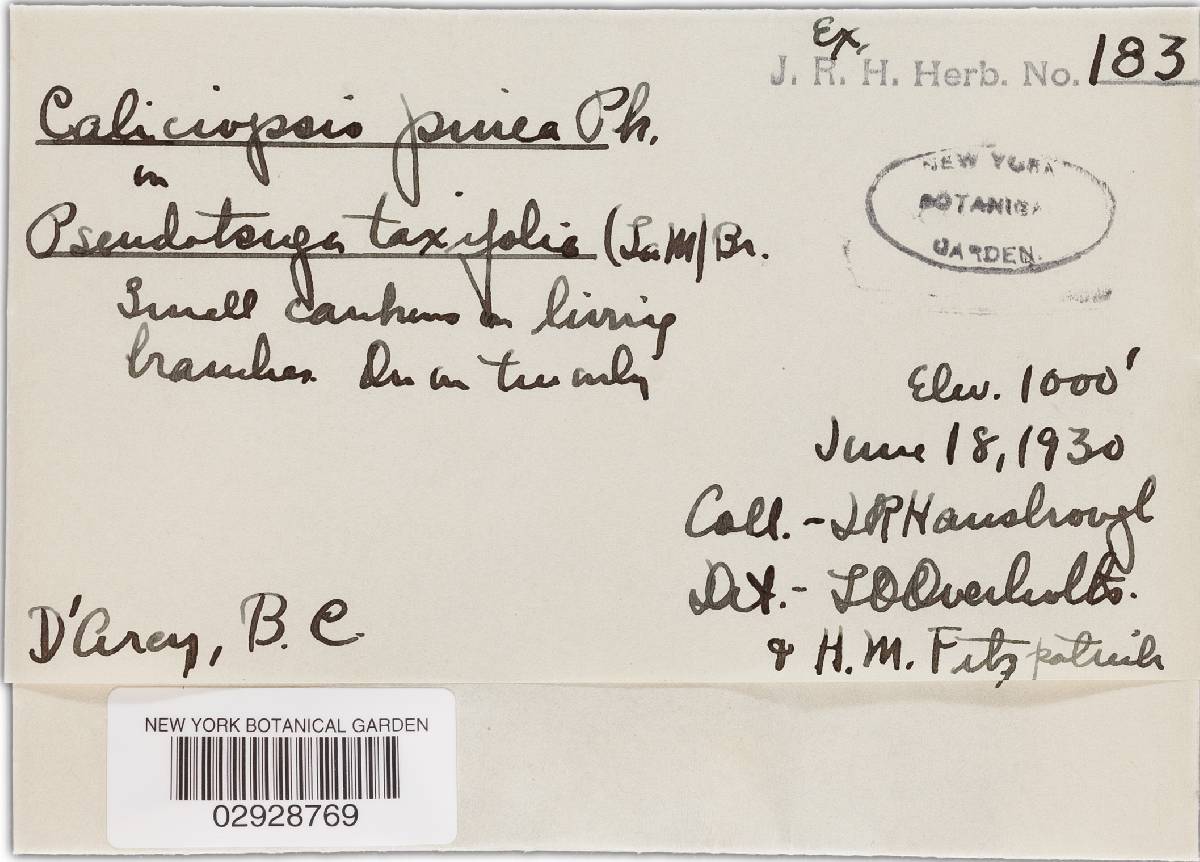 Ex.
J. R. H. Herb. No. 183
Caliciopsis pinea Pk.
on
Pseudotsuga taxifolia (LaM) Br.
Small cankers on living
branches. One on tree only
NEW YORK
BOTANICAL
GARDEN.
Elev. 1000'
June 18, 1930
Coll. - J R Hansbrough
Det. - L O Overholts.
& H. M. Fitzpatrick
D'Arcy, B. C.
NEW YORK BOTANICAL GARDEN
02928769